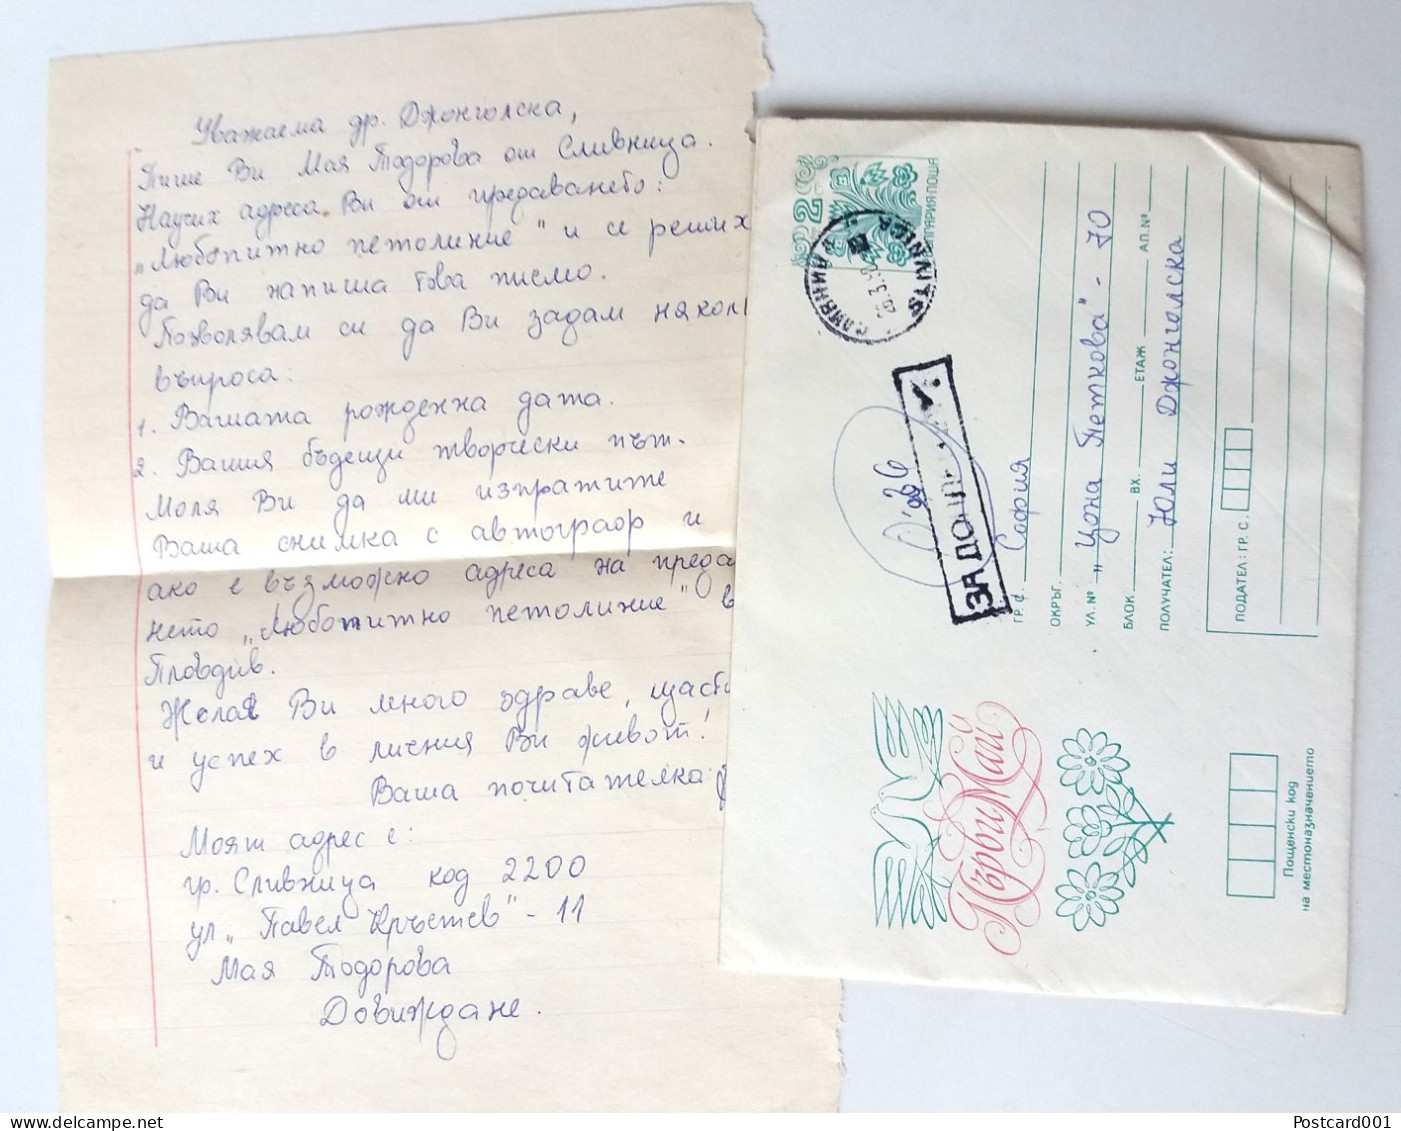 Уважаема др. Джонголска,
Пише Ви Мая Тодорова от Сливница.
Научих адреса Ви от предаването:
„Любопитно петолиние" и се реших
да Ви напиша това писмо.
Позволявам си да Ви задам някол
въпроса:
1. Вашата рожденна дата.
2. Вашия бъдещи творчески път.
Моля Ви да ми изпратите
Ваша снимка с автограф и
ако е възможно адреса на преда
нето „Любопитно петолиние" в
Пловдив.
Желая Ви много здраве, щасти
и успех в личния Ви живот!
Ваша почитателка:
Моят адрес е:
гр. Сливница код 2200
ул „Павел Кръстев" - 11
Мая Тодорова
Довиждане.
2
БЪЛГАРИЯ·ПОЩА
СЛИВНИЦА
SLIVNICA
ЗА ДОПЛ
ГР. С. София
ОКРЪГ.
УЛ. № „Цона Петкова" - 70
БЛОК ВХ. ЕТАЖ АП. №
ПОЛУЧАТЕЛ: Юли Джонголска
ПОДАТЕЛ: ГР. С.
Първи Май
Пощенски код
на местоназначението
Postcard001